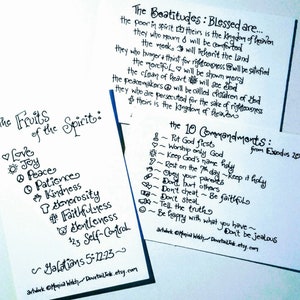 The Beatitudes: Blessed are...
the poor in spirit theirs is the kingdom of heaven
they who mourn will be comforted
the meek will inherit the land
they who hunger & thirst for righteousness will be satisfied
the merciful will be shown mercy
the clean of heart will see God
the peacemakers will be called children of God
they who are persecuted for the sake of righteousness
theirs is the kingdom of heaven
the Fruits
of the Spirit:
Love
Joy
Peace
Patience
Kindness
Generosity
Faithfulness
Gentleness
Self-Control
~ Galatians 5:22-23
the 10 Commandments:
from Exodus 20
~ Put God first
~ Worship only God
~ Keep God's name Holy
~ Rest on the 7th day ~ keep it holy
~ Obey your parents
~ Don't hurt others
~ Don't cheat ~ Be faithful
~ Don't steal
~ Tell the truth
~ Be happy with what you have ~
Don't be jealous